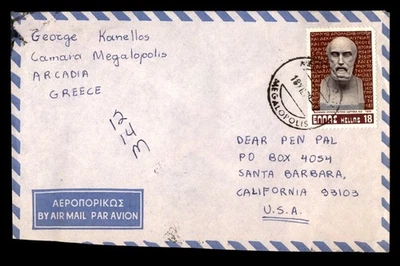 George Kanellos
Camara Megalopolis
ARCADIA
GREECE
12
14
M
MEGALOPOLIS
ΕΛΛΑΣ HELLAS 18
DEAR PEN PAL
PO BOX 4054
SANTA BARBARA,
CALIFORNIA 93103
U.S.A.
ΑΕΡΟΠΟΡΙΚΩΣ
BY AIR MAIL PAR AVION